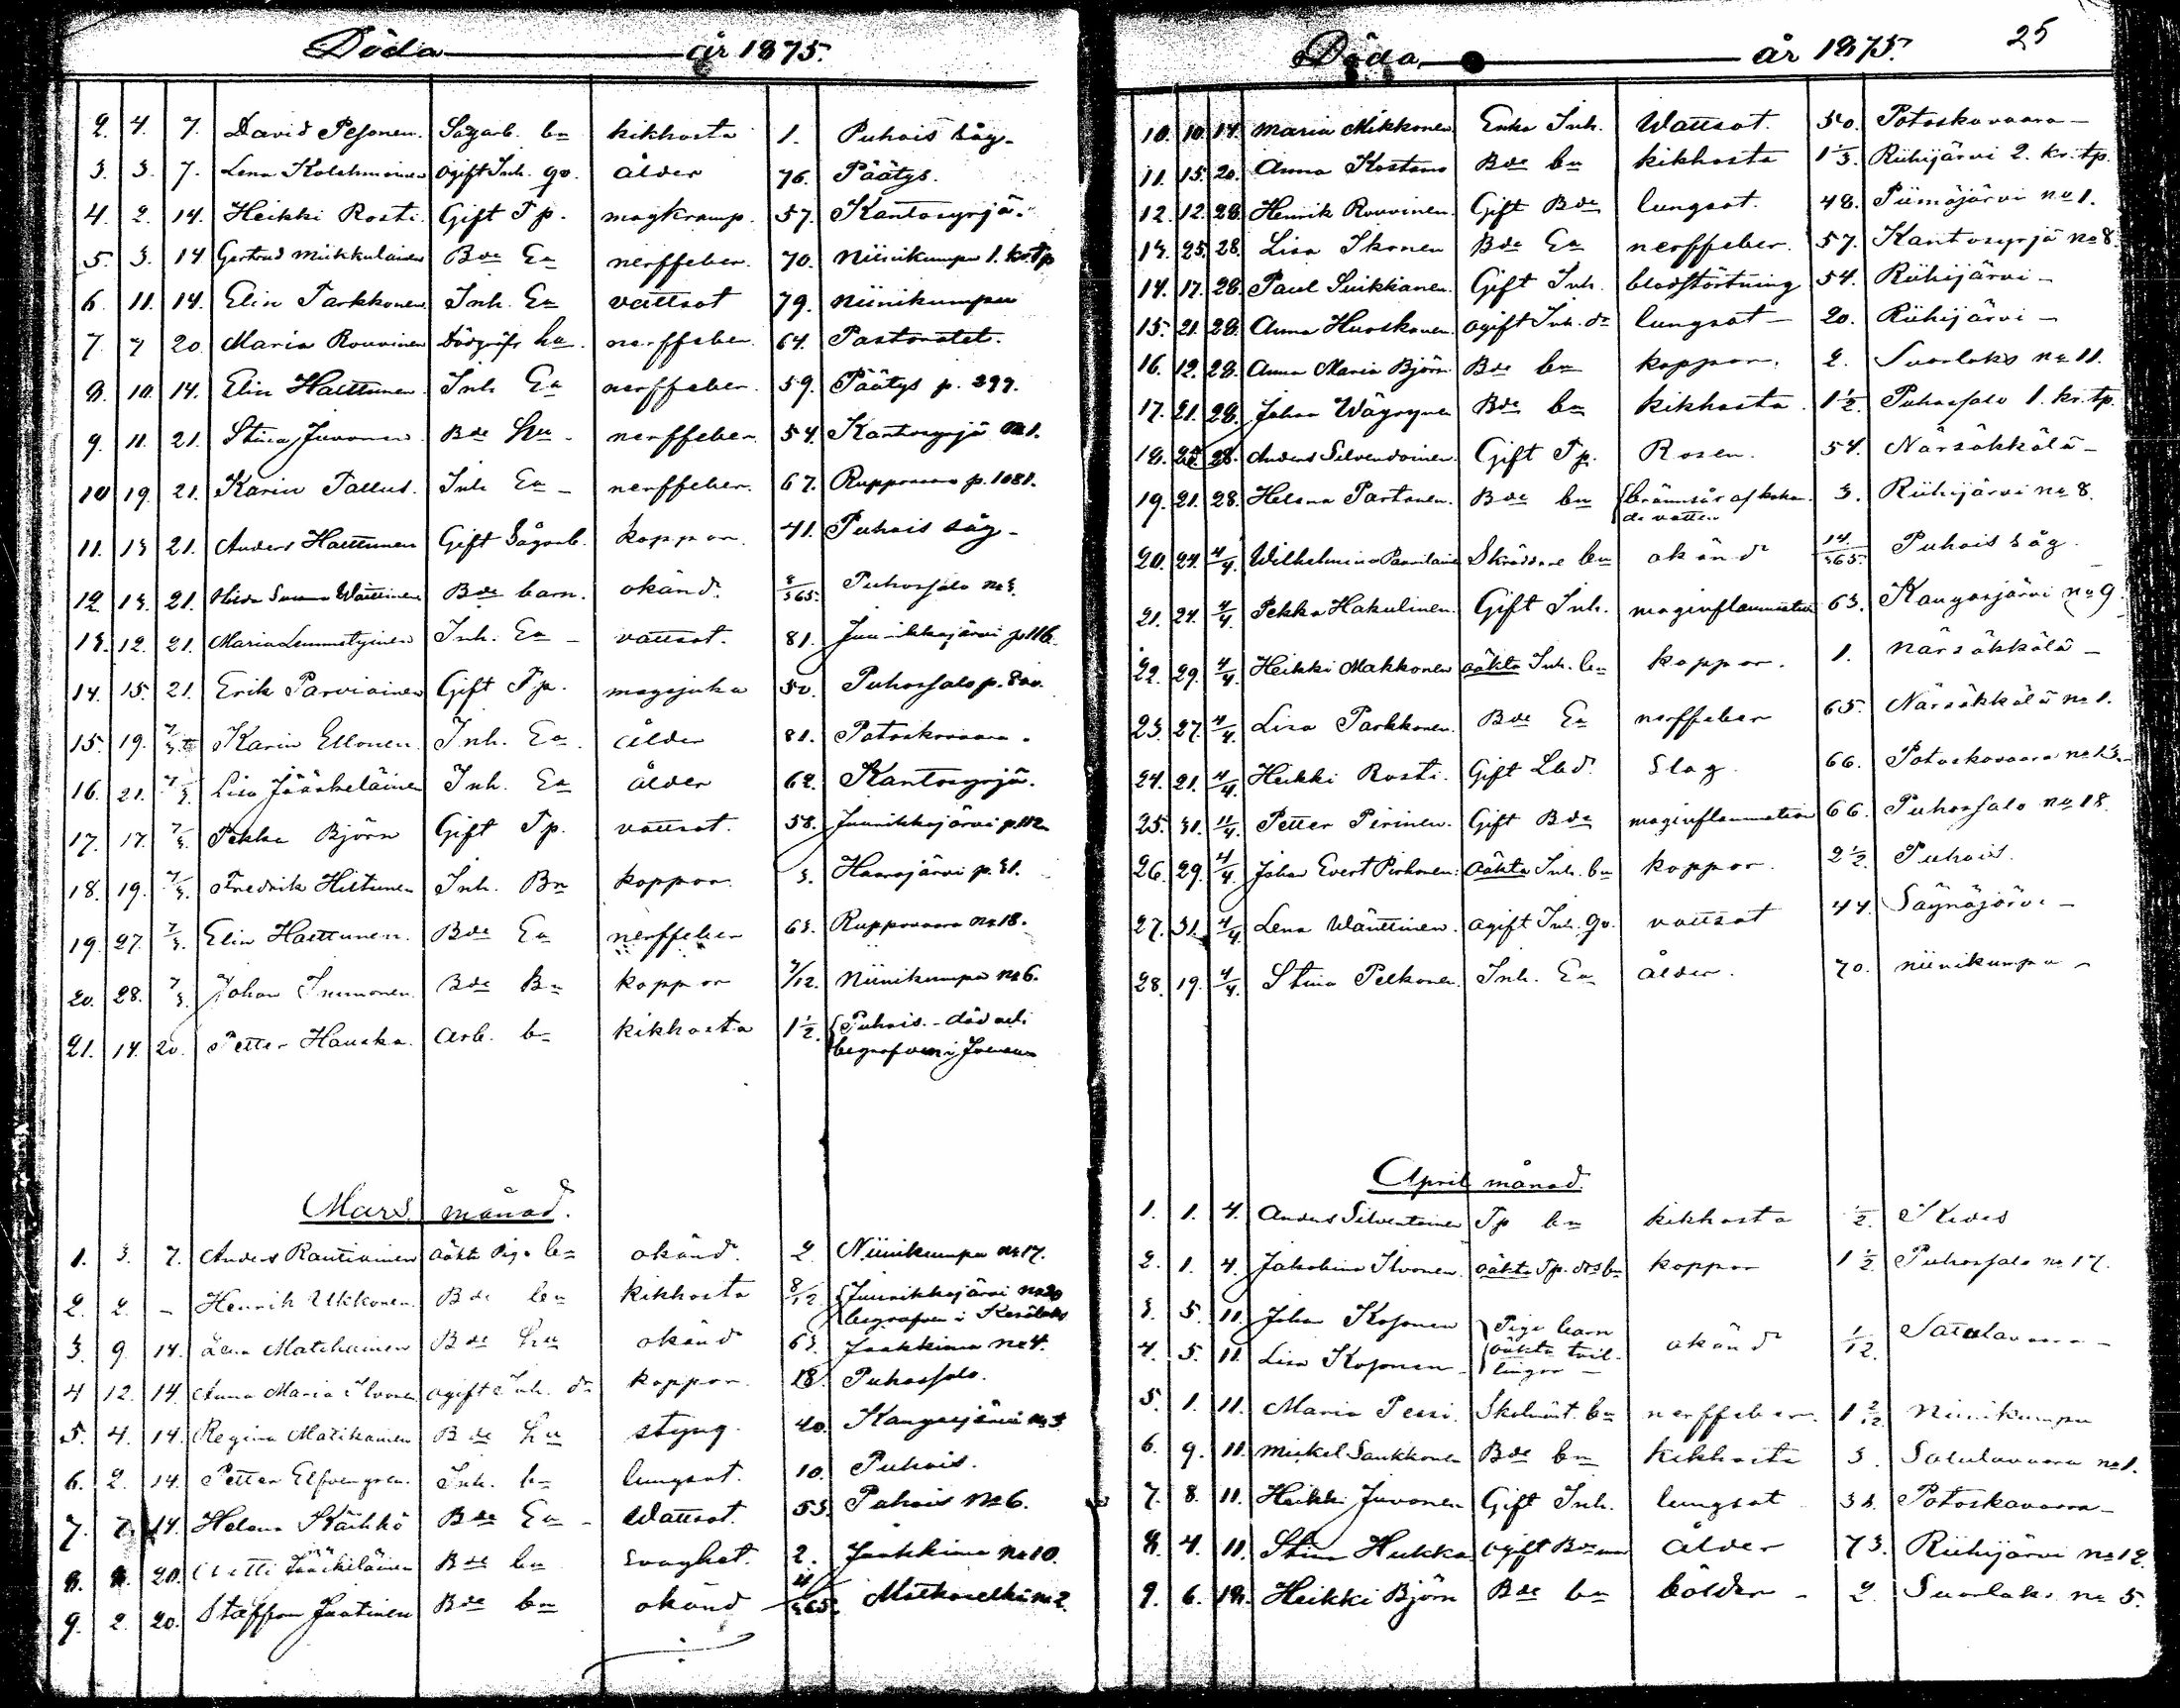 Döda år 1875.
2. 4. 7. David Pesonen. Sågarb. bn kikhosta 1. Puhois såg.
3. 3. 7. Lena Kolehmainen ogift Inh. qv. ålder 76. Päätys.
4. 2. 14. Heikki Rosti. Gift Tp. magkramp. 57. Kantosyrjä.
5. 3. 14 Gertrud Mikkulainen Bde Ea nerffeber. 70. Niinikumpu 1. kr. tp
6. 11. 14. Elin Parkkonen Inh. Ea vattsot 79. Niinikumpu
7. 7 20 Maria Rouvinen Dödgräfv hu. nerffeber. 64. Pastoratet.
8. 10. 14. Elin Haittunen Inh Ea nerffeber. 59. Päätys p. 299.
9. 11. 21. Stina Juvonen Bde Hu nerffeber. 54. Kantosyrjä No 1.
10 19. 21. Karin Pallus. Inh Ea nerffeber. 67. Ruppovaara p. 1081.
11. 13 21. Anders Haittunen Gift Sågarb. koppor. 41. Puhois såg
12. 13. 21. Wänttinen Bde barn. okänd. 8/365. Puhossalo No 3.
13. 12. 21. Maria Lemmetyinen Inh. Ea vattsot. 81. Juurikkajärvi p. 116.
14. 15. 21. Erik Parviainen Gift Tp. magsjuka 50. Puhossalo p.
15. 19. 7/3. Karin Ellonen. Inh. Ea. ålder 81. Potoskavaara.
16. 21. 7/3. Lisa Jääskeläinen Inh. Ea ålder 62. Kantosyrjä.
17. 17. 7/3. Pekka Björn Gift Tp. vattsot. 58. Juurikkajärvi p. 112
18. 19. 7/3. Fredrik Hiltunen Inh. Bn koppor. 3. Haarajärvi p. 31.
19. 27. 7/3. Elin Haittunen. Bde Ea nerffeber 63. Ruppovaara No 18.
20. 28. 7/3. Johan Immonen. Bde Bn koppor 7/12. Niinikumpu No 6.
21. 14. 20. Petter Hauska. arb. bn kikhosta 1 1/2. Puhois. - död och
begrafven i Joensuu
Mars månad.
1. 3. 7. Anders Rautiainen oäkta Pig. bn okänd. 2 Niinikumpu No 17.
2. 2. - Henrik Ukkonen. Bde bn kikhosta 8/12. Juurikkajärvi No 20
begrafven i Kesälaks
3. 9. 14. Lena Matikainen Bde Hu okänd 63. Jaakkima No 4.
4 12. 14. Anna Maria Ilvonen ogift Inh. dr koppor. 18. Puhossalo.
5. 4. 14. Regina Matikainen Bde Hu styng. 40. Kangasjärvi No 3
6. 2. 14. Petter Elfvengren. Inh. bn lungsot. 10. Puhois.
7. 7. 14. Helena Käihkö Bde Ea Wattsot. 53. Puhois No 6.
8. 8. 20. Matti Jääskeläinen Bde bn Svaghet. 2. Jaakkima No 10.
9. 2. 20. Staffan Juutinen Bde bn okänd 4/365. Matkaselkä No 2.
Döda år 1875. 25
10. 10. 14. Maria Mikkonen Enka Inh. Wattsot. 50. Potoskavaara
11. 15. 20. Anna Kostamo Bde bn kikhosta 1 1/3. Riihijärvi 2. kr. tp.
12. 12. 28. Henrik Rouvinen. Gift Bde lungsot. 48. Piimäjärvi No 1.
13. 25. 28. Lisa Ikonen Bde Ea nerffeber. 57. Kantosyrjä No 8.
14. 17. 28. Paul Suikkanen. Gift Inh. blodstörtning 54. Riihijärvi
15. 21. 28. Anna Hurskanen. ogift Inh. dr lungsot 20. Riihijärvi
16. 12. 28. Anna Maria Björn Bde bn koppor. 2. Suorlaks No 11.
17. 21. 28. Johan Wäyrynen Bde bn kikhosta. 1 1/2. Puhossalo 1. kr. tp.
18. 25. 28. Anders Silvendoinen. Gift Tp. Rosen. 54. Närsäkkälä
19. 21. 28. Helena Partanen. Bde bn brännsår af kokan
de vatten 3. Riihijärvi No 8.
20. 24. 4/4. Wilhelmina Skräddare bn okänd 14/365. Puhois såg.
21. 24. 4/4. Pekka Hakulinen. Gift Inh. maginflammation 63. Kangasjärvi No 9.
22. 29. 4/4. Heikki Makkonen oäkta Inh. bn koppor. 1. Närsäkkälä
23. 27. 4/4. Lisa Parkkonen. Bde Ea nerffeber 65. Närsäkkälä No 1.
24. 21. 4/4. Heikki Rosti. Gift Lbd. Slag. 66. Potoskavaara No 13.
25. 31. 11/4. Petter Pirinen. Gift Bde maginflammation 66. Puhossalo No 18.
26. 29. 4/4. Johan Evert Pirhonen. oäkta Inh. bn koppor. 2 1/2. Puhois.
27. 31. 4/4. Lena Wänttinen. ogift Inh. qv. vattsot 44. Säynäjärvi
28. 19. 4/4. Stina Pelkonen. Inh. Ea ålder. 70. Niinikumpu
April månad.
1. 1. 4. Anders Silventoinen Tp bn kikhosta 1/2. Kides
2. 1. 4. Jakobina Ilvonen. oäkta Tp. drs bn koppor 1 1/2. Puhossalo No 17.
3. 5. 11. Johan Kosonen Pigo barn
4. 5. 11. Lisa Kosonen oäkta tvil-
lingar okänd 1/12. Satulavaara
5. 1. 11. Maria Pessi. Skolmäst. bn nerffeber. 1 2/12. Niinikumpu
6. 9. 11. Mickel Saukkonen Bde bn kikhosta 3. Satulavaara No 1.
7. 8. 11. Heikki Juvonen Gift Inh. lungsot 38. Potoskavaara
8. 4. 11. Stina Hukka ogift ålder 73. Riihijärvi No 12.
9. 6. 18. Heikki Björn Bde bn bölder 2. Suorlaks No 5.